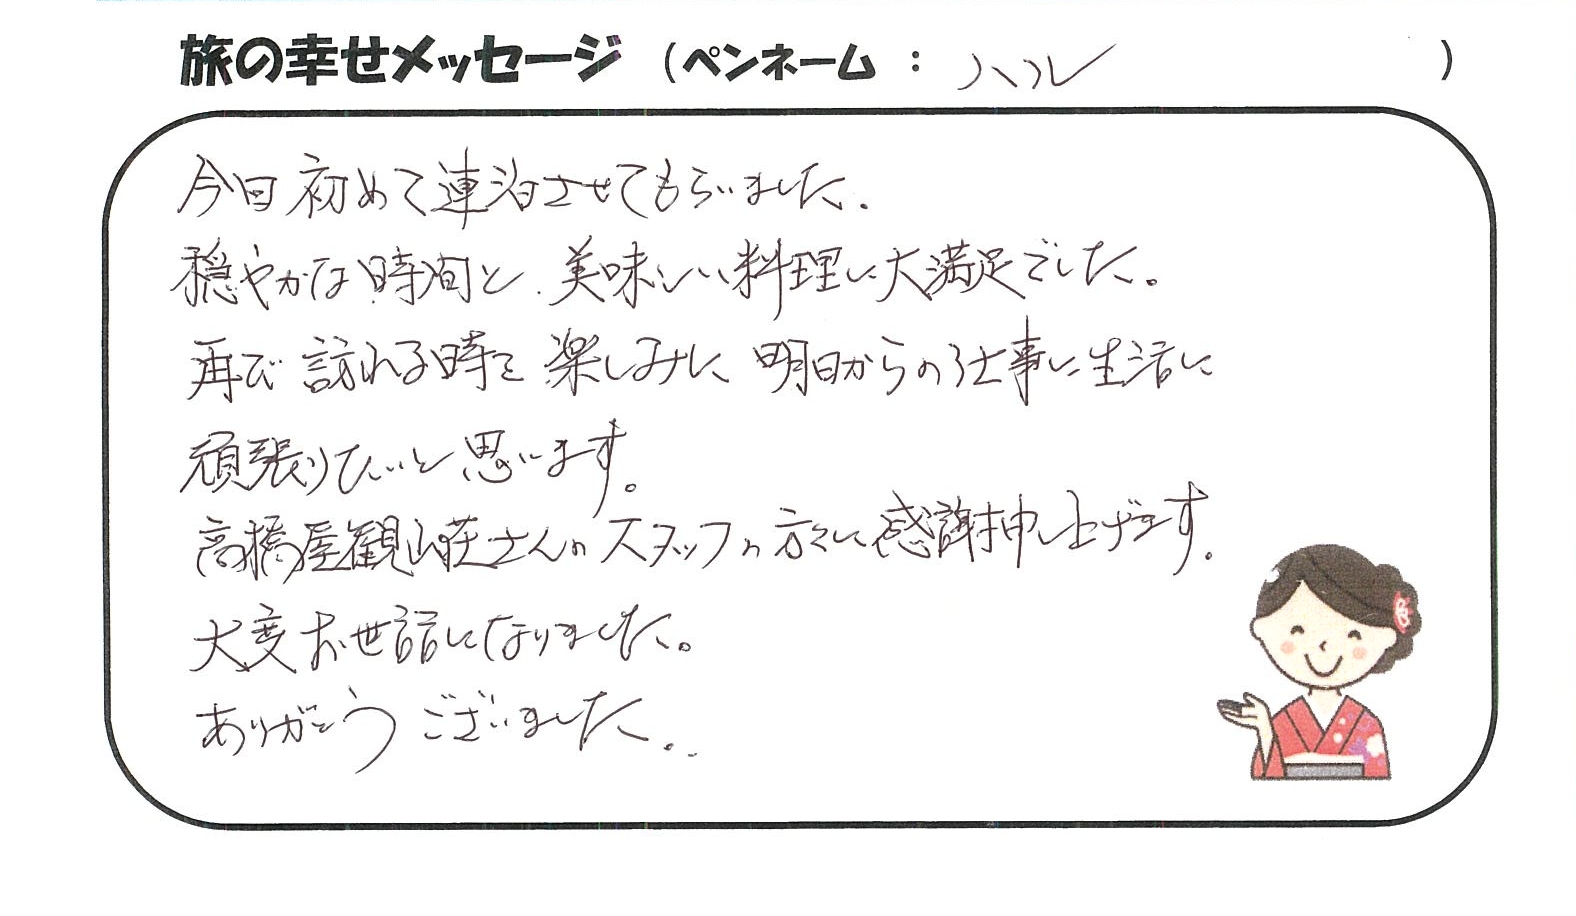 旅の幸せメッセージ (ペンネーム : ハル )
今日初めて連泊させてもらいました.
穏やかな時間と、美味しい料理に大満足でした。
再び訪れる時を楽しみに明日からの仕事に生活に
頑張りたいと思います。
高橋屋観山荘さんのスタッフの方々に感謝申し上げます。
大変お世話になりました。
ありがとうございました..